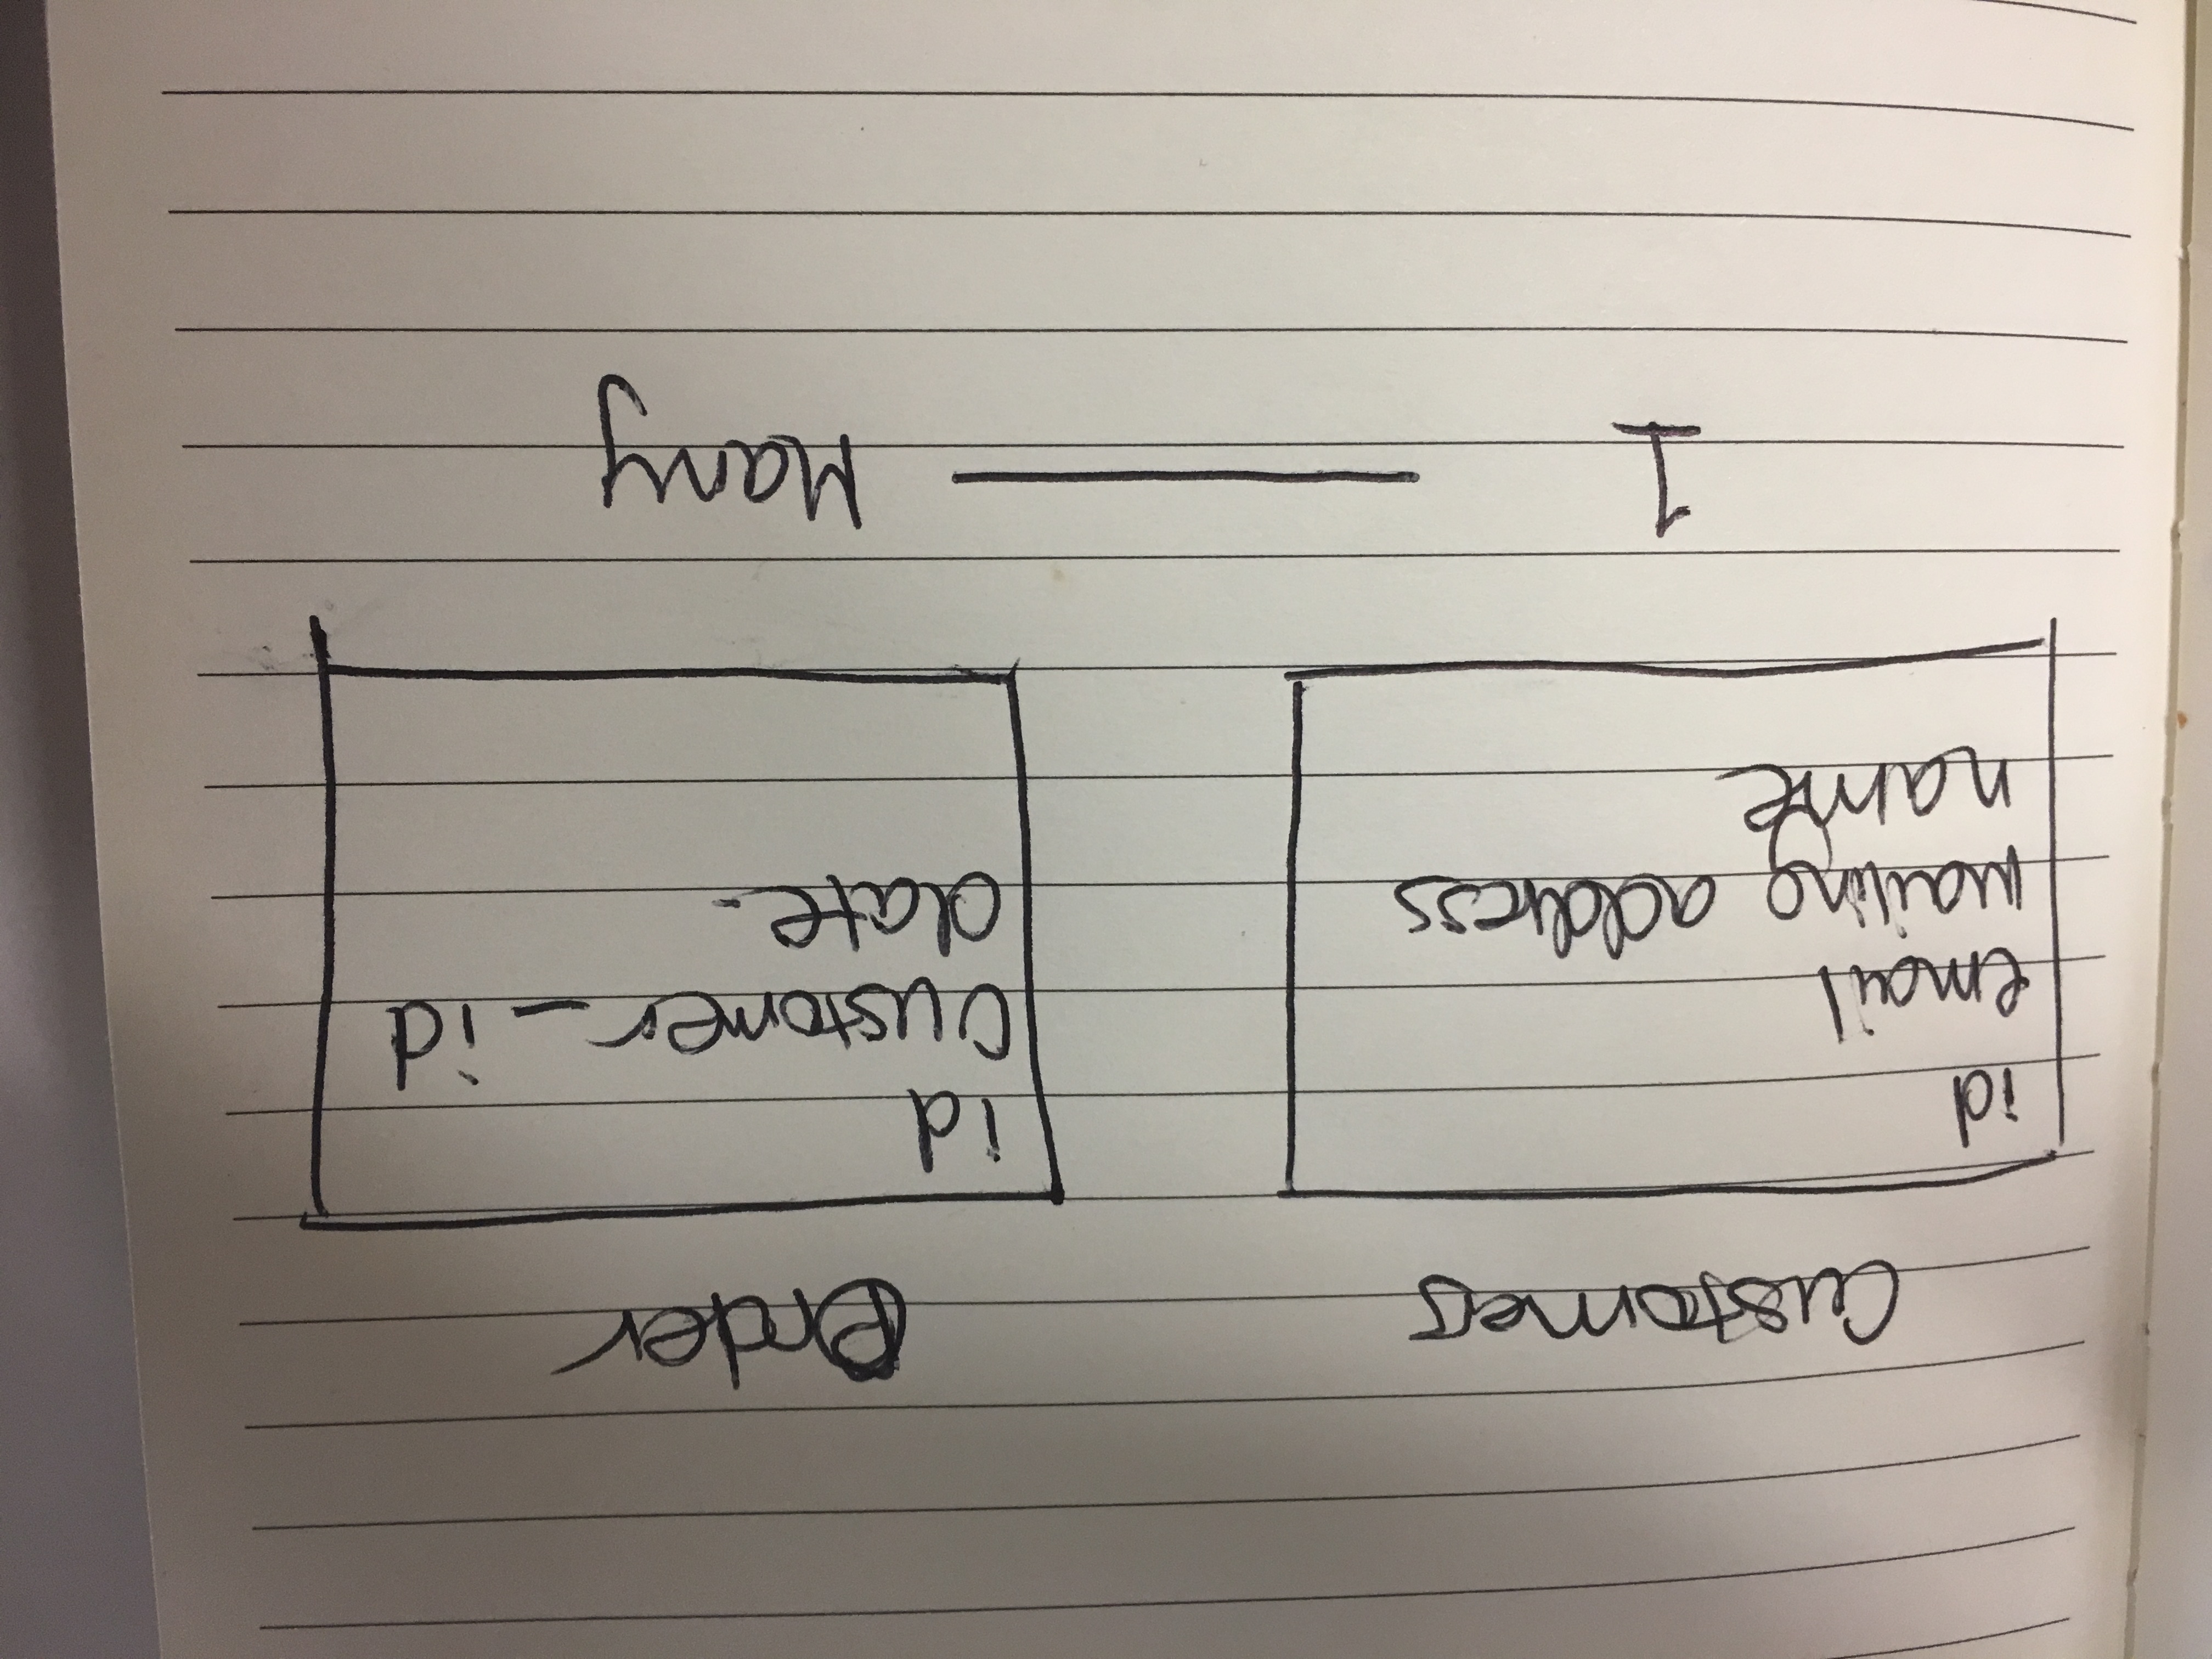 Customers
Order
id
email
mailing address
name
id
Customer_id
date.
1 — Many